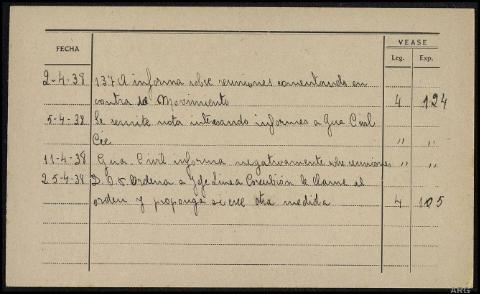 FECHA
VEASE
Leg. Exp.
2-4-38 137 A informa sobre reuniones comentando en
contra del Movimiento 4 124
5-4-38 Se remite nota interesando informes a Gua Civil
" "
11-4-38 Gua. Civil informa negativamente sobre reuniones " "
25-4-38 Ordena a Jefe Linea Corcubión le llame al
orden y proponga si cree otra medida 4 105
ARG